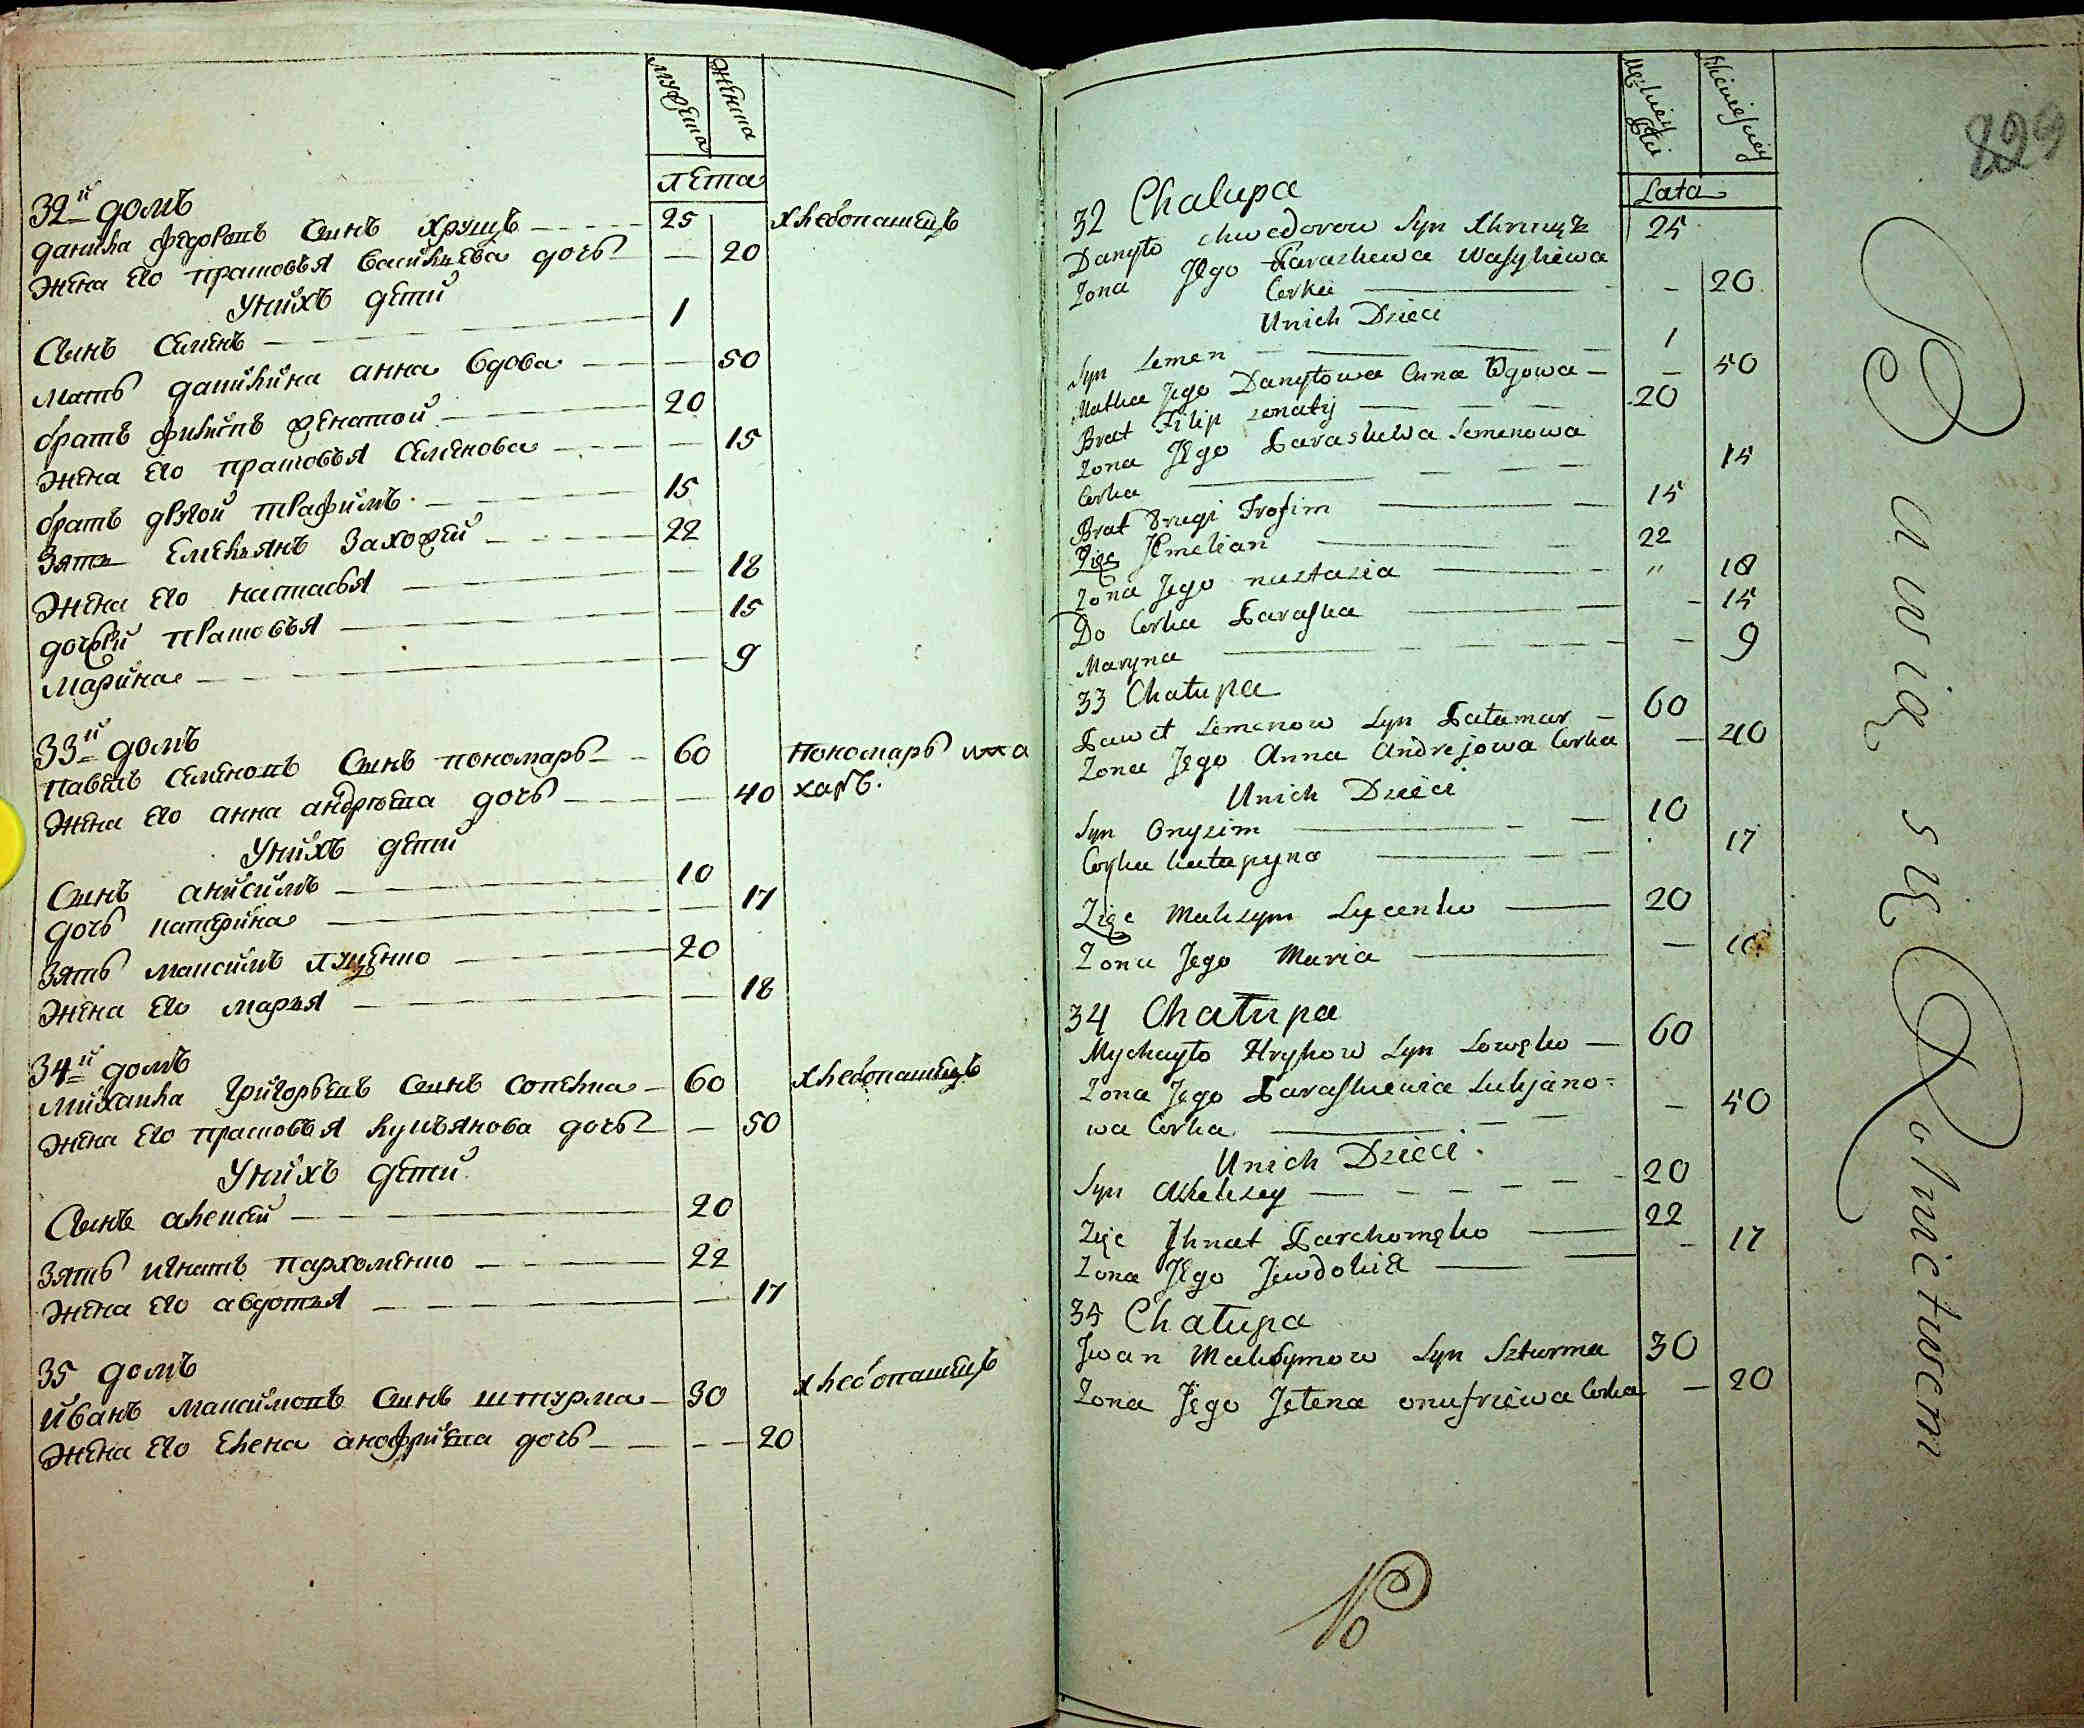 мужеска
женска
лета
32й домъ
данила федоровъ сынъ хрущъ 25 хлебопашецъ
жена его прасковья василиева дочь 20
у нихъ дети
сынъ семенъ 1
мать данилина анна вдова 50
братъ филипъ женатой 20
жена его прасковья семенова 15
братъ другой трафимъ 15
зять емельянъ захожей 22
жена его настасья 18
дочьри прасковья 15
марина 9
33й домъ
павелъ семеновъ сынъ пономарь 60 пономарь
харь.
жена его анна андреева дочь 40
у нихъ дети
сынъ анисимъ 10
дочь катерина 17
зять максимъ луценко 20
жена его марья 18
34й домъ
михаила григорьевъ сынъ 60 хлебопашецъ
жена его прасковья лукъянова дочь 50
у нихъ дети
сынъ алексей 20
зять игнатъ пархоменко 22
жена его авдотья 17
35 домъ
иванъ максимовъ сынъ штурма 30 хлебопашецъ
жена его елена анофриева дочь 20
829
Lata
32 Chalupa
Danyło chwedorow Syn Chrnuszz 25
Zona Jego Paraskewa Wasyliewa
Corka 20
Unich Dzieci
Syn Semen 1
Matka Jego Danyłowa Anna Wdowa 50
Brat Filip zonaty 20
Zona Jego Paraskewa Semenowa
Corka 15
Brat Drugi Trofim 15
Zięc Jemelian 22
Zona Jego nastazia " 18
Do Corka Paraska 15
Maryna 9
33 Chatupa
Paweł Semenow Syn Pałamar 60
Zona Jego Anna Andrejowa Corka 40
Unich Dzieci
Syn Onyzim 10
Corka Kateryna 17
Zięc Maksym Lucenko 20
Zona Jego Maria
34 Chatupa
Mychayło Hryhow Syn 60
Zona Jego Paraskewia Lukjano=
wa Corka 50
Unich Dzieci.
Syn Alekszey 20
Zięc Ihnat Parchomęko 22
Zona Jego Jewdokia 17
35 Chatupa
Iwan Maksymow Syn Szturma 30
Zona Jego Jelena onufriewa Corka 20
No